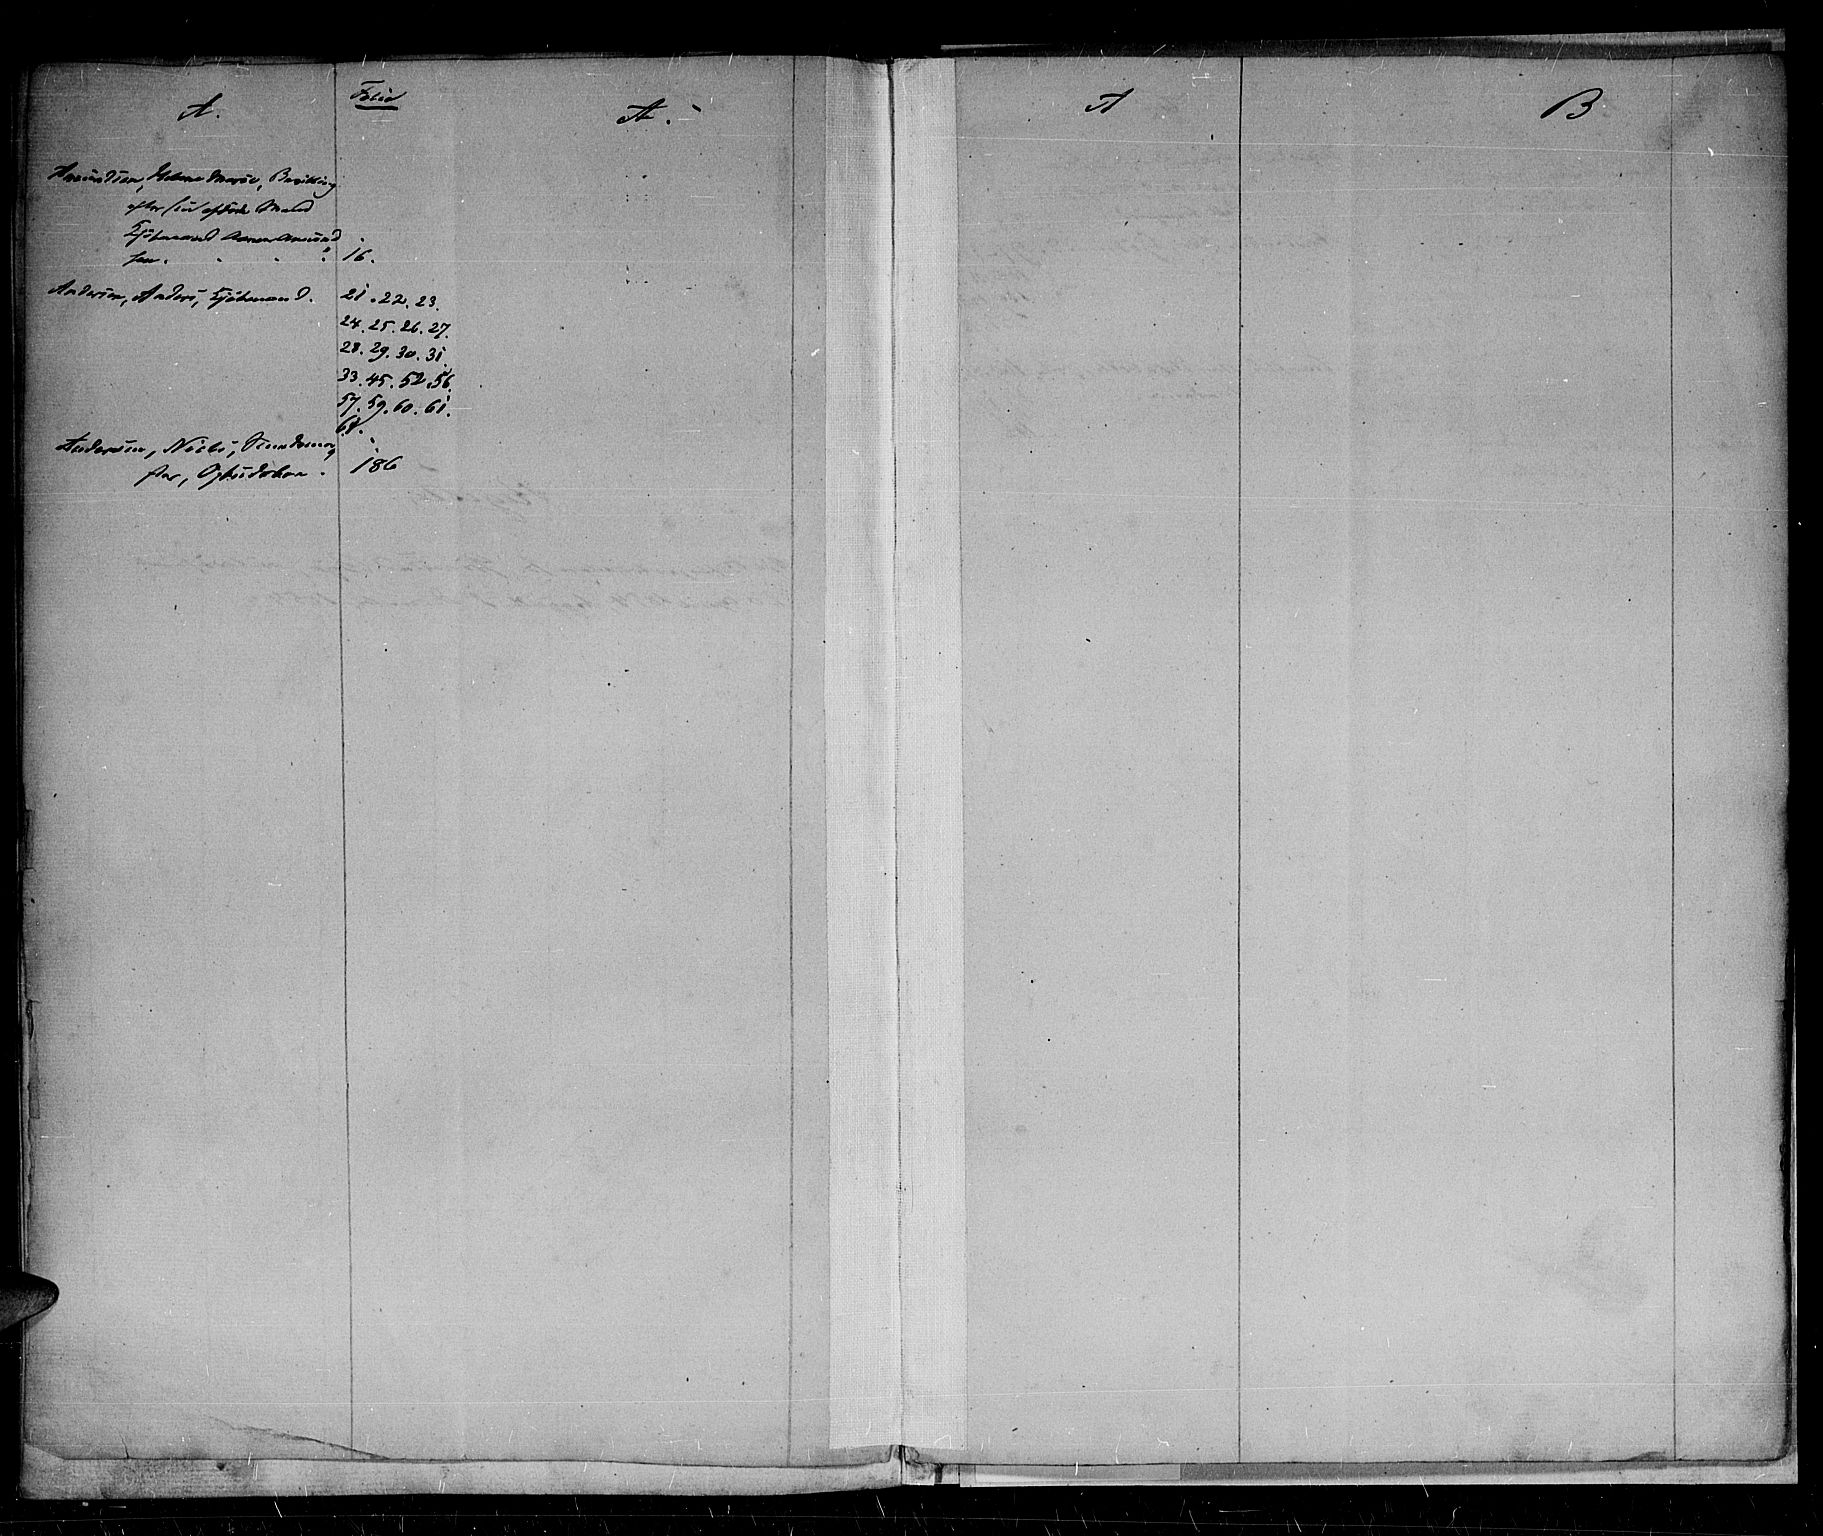 A.
Folio
A.
A
B
Amundsen, Helene Marie, Bevilling
efter sin afdøde Mand
Kjøbmand Aanon Amund
sen. 16.
Andersen, Anders, Kjøbmand. 21. 22. 23.
24. 25. 26. 27.
28. 29. 30. 31.
33. 45. 52. 56.
57. 59. 60. 61.
68.
Andersen, Niels,
186